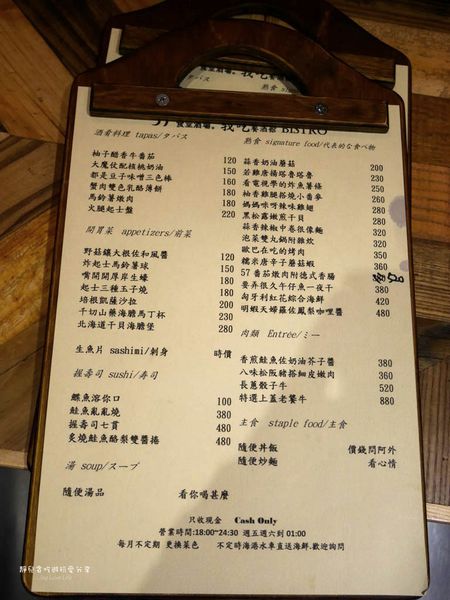 57 後座酒場。我吃餐酒館 BISTRO
酒肴料理 tapas/タパス
柚子醋香牛番茄 120
大魔仗配核桃奶油 150
都是豆子味噌三色棒 160
蟹肉雙色乳酪薄餅 180
馬鈴薯嫩肉 180
火腿起士盤 220
開胃菜 appetizers/前菜
野菇鑲大根佐和風醬 120
炸起士馬鈴薯球 150
嘴開開厚岸生蠔 180
起士三種五子燒 180
培根凱薩沙拉 200
千切山藥海膽馬丁杯 230
北海道干貝海膽堡 280
生魚片 sashimi/刺身 時價
握壽司 sushi/寿司
鰈魚溶你口 100
鮭魚亂亂燒 380
握壽司七貫 480
炙燒鮭魚酪梨雙醬捲 480
湯 soup/スープ
隨便湯品 看你喝甚麼
熟食 signature food/代表的な食べ物
蒜香奶油蘑菇 200
若雞唐揚塔魯塔魯 230
看電視學的炸魚薯條 250
柚香雞腿搭燒小番麥 260
媽媽咪呀辣味雞翅 260
黑松露嫩煎干貝 280
蒜香辣椒中卷很像麵 320
泡菜雙丸鍋附雜炊 320
歐巴在吃的烤肉 350
糯米唐辛子蘑菇蝦 360
57 番茄燉肉附德式香腸 360
要弄很久牛仔魚一夜干 380 520
匈牙利紅花綜合海鮮 420
明蝦天婦羅佐鳳梨咖哩醬 480
肉類 Entrée/ミー
香煎鮭魚佐奶油芥子醬 380
八味松阪豬搭細皮嫩肉 360
長蔥骰子牛 520
特選上蓋老饕牛 880
主食 staple food/主食
隨便丼飯 價錢問阿外
隨便炒麵 看心情
只收現金 Cash Only
營業時間:18:00~24:30 週五週六到 01:00
每月不定期 更換菜色 不定時海港水車直送海鮮.歡迎詢問
靜兒貪吃遊玩愛分享